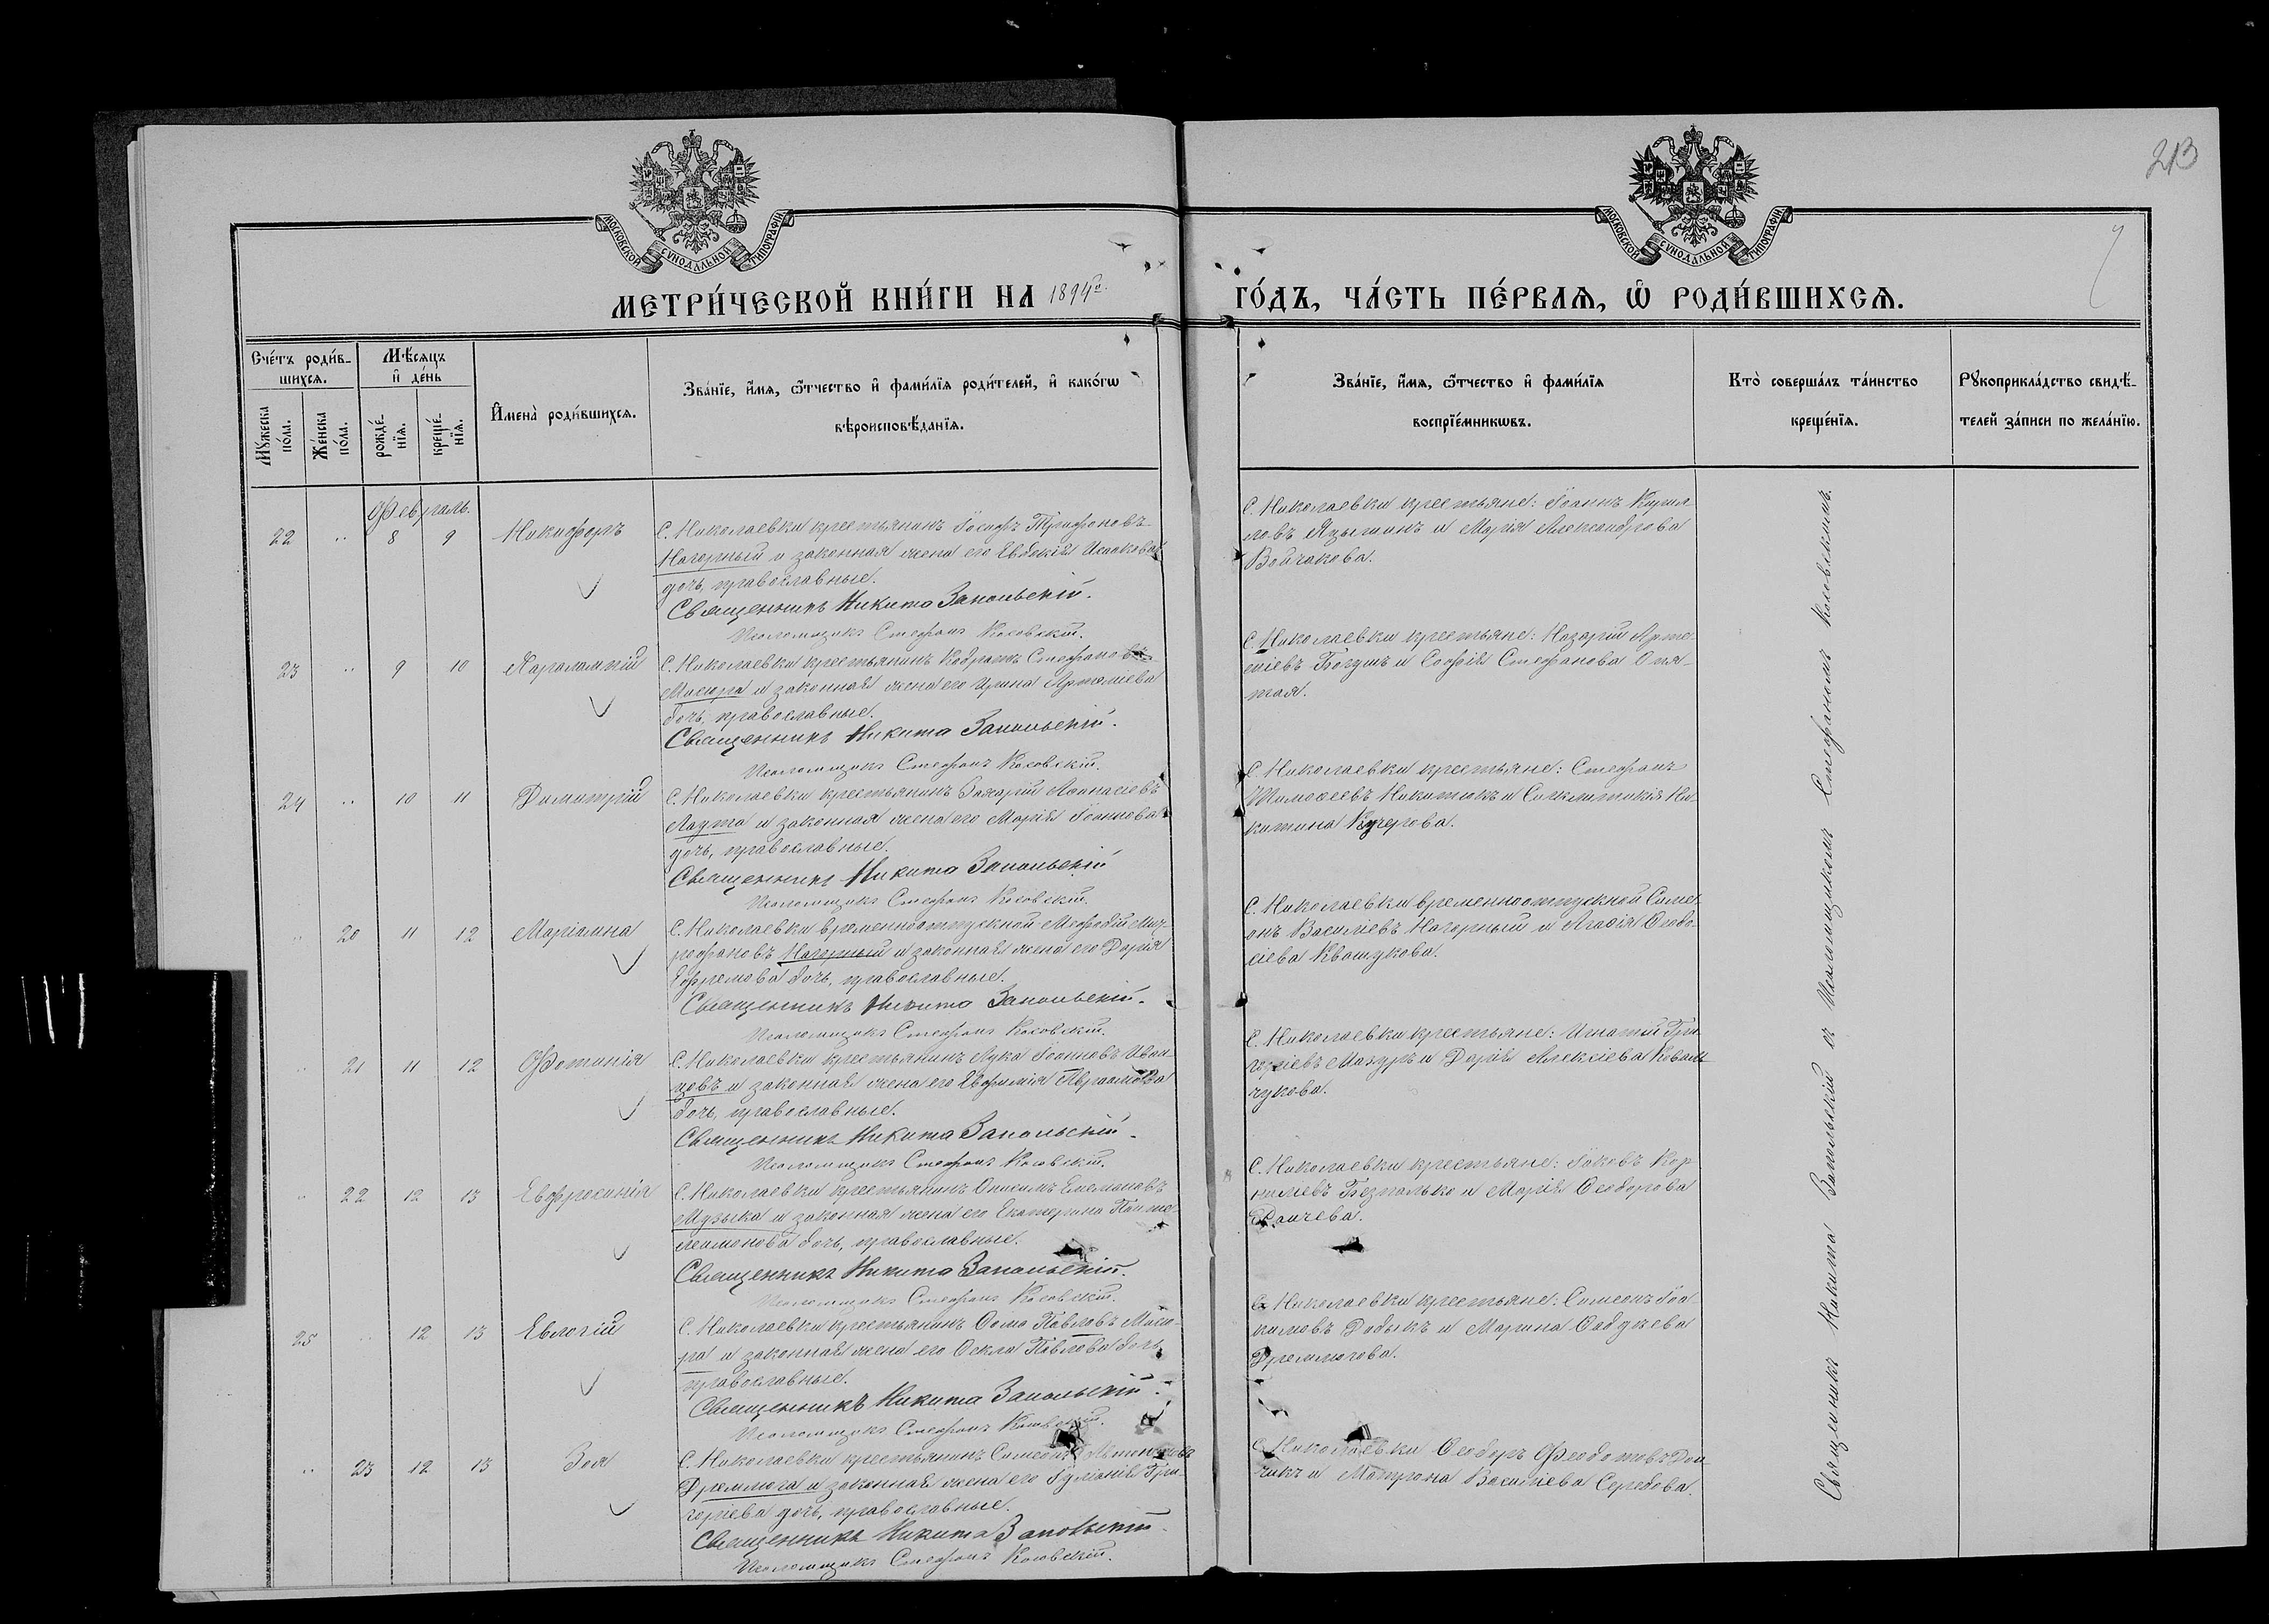 213
7
МОСКОВСКОЙ СѴНОДАЛЬНОЙ ТИПОГРАФІИ
МОСКОВСКОЙ СѴНОДАЛЬНОЙ ТИПОГРАФІИ
МЕТРИ́ЧЕСКОЙ КНИ́ГИ НА 1894й
ГО́ДЪ, ЧА́СТЬ ПЕ́РВАѦ, Ѡ҆ РОДИ́ВШИХСѦ.
Сче́тъ роди́в-
шихсѧ.
Мꙋ́жеска по́ла.
Же́нска по́ла.
Мѣ́сѧцъ
и҆ де́нь
рожде́-
нїѧ.
креще́-
нїѧ.
И҆мена̀ роди́вшихсѧ.
Зва́нїе, и҆́мѧ, ѻ҆́тчество и҆ фами́лїѧ роди́телей, и҆ како́гѡ
вѣроисповѣ́данїѧ.
Зва́нїе, и҆́мѧ, ѻ҆́тчество и҆ фами́лїѧ
воспрїе́мникѡвъ.
Кто̀ соверша́лъ та́инство
креще́нїѧ.
Рꙋкоприкла́дство свидѣ́-
телей за́писи по жела́нїю.
Февраль.
22 .. 8 9 Никифоръ
С. Николаевки крестьянинъ Іосифъ Трифоновъ
Нагорный и законная жена его Евдокія Исаакова
дочь, православные.
Священникъ Никита Запольскій.
Псаломщикъ Стефанъ Косовскій.
С. Николаевки крестьяне: Іоаннъ Кирил
ловъ и Марія Александрова
Войчакова.
23 .. 9 10 Харалампій
С. Николаевки крестьянинъ Кодратъ Стефановъ
Мисюра и законная жена его Ирина
дочь, православные.
Священникъ Никита Запольскій.
Псаломщикъ Стефанъ Косовскій.
С. Николаевки крестьяне: Назарій Арте-
міевъ Богушъ и Софія Стефанова Опя-
тая.
24 .. 10 11 Димитрій
С. Николаевки крестьянинъ Захарій Аѳанасіевъ
Лаута и законная жена его Марія Іоаннова
дочь, православные.
Священникъ Никита Запольскій
Псаломщикъ Стефанъ Косовскій.
С. Николаевки крестьяне: Стефанъ
Тимоѳеевъ Никитюкъ и Синклитикія Ни-
китина Кучерова.
.. 20 11 12 Маріамна
С. Николаевки временноотпускной Меѳодій Мит-
рофановъ Нагорный и законная жена его Дарія
Ефремова дочь, православные.
Священникъ Никита Запольскій.
Псаломщикъ Стефанъ Косовскій.
С. Николаевки временноотпускной Симе-
онъ Василіевъ Нагорный и Агафія Ѳеодо-
сіева Квашукова.
.. 21 11 12 Фотинія
С. Николаевки крестьянинъ Лука Іоанновъ Иван-
цовъ и законная жена его Евфимія Авраамова
дочь, православные.
Священникъ Никита Запольскій.
Псаломщикъ Стефанъ Косовскій.
С. Николаевки крестьяне: Игнатій Гри-
горіевъ Мазуръ и Дарія Алексіева Коваль-
чукова.
.. 22 12 13 Евфросинія
С. Николаевки крестьянинъ Онисимъ
Музыка и законная жена его Екатерина Панте-
леимонова дочь, православные.
Священникъ Никита Запольскій.
Псаломщикъ Стефанъ Косовскій.
С. Николаевки крестьяне: Іаковъ Кор
ниліевъ Безпалько и Марія Ѳеодорова
25 .. 12 13 Евлогій
С. Николаевки крестьянинъ Ѳома Павловъ Мисю-
ра и законная жена его Ѳекла Павлова дочь,
православные.
Священникъ Никита Запольскій.
Псаломщикъ Стефанъ Косовскій.
С. Николаевки крестьяне: Симеонъ Іоа-
кимовъ Додыкъ и Марина
Дремлюгова.
.. 23 12 13 Зоя
С. Николаевки крестьянинъ Симеонъ
Дремлюга и законная жена его Іуліанія Гри-
горіева дочь, православные.
Священникъ Никита Запольскій.
Псаломщикъ Стефанъ Косовскій.
С. Николаевки Ѳеодоръ Ѳеодотовъ Дой-
чикъ и Матрона Василіева Середова.
Священникъ Никита Запольскій съ Псаломщикомъ Стефаномъ Косовскимъ.